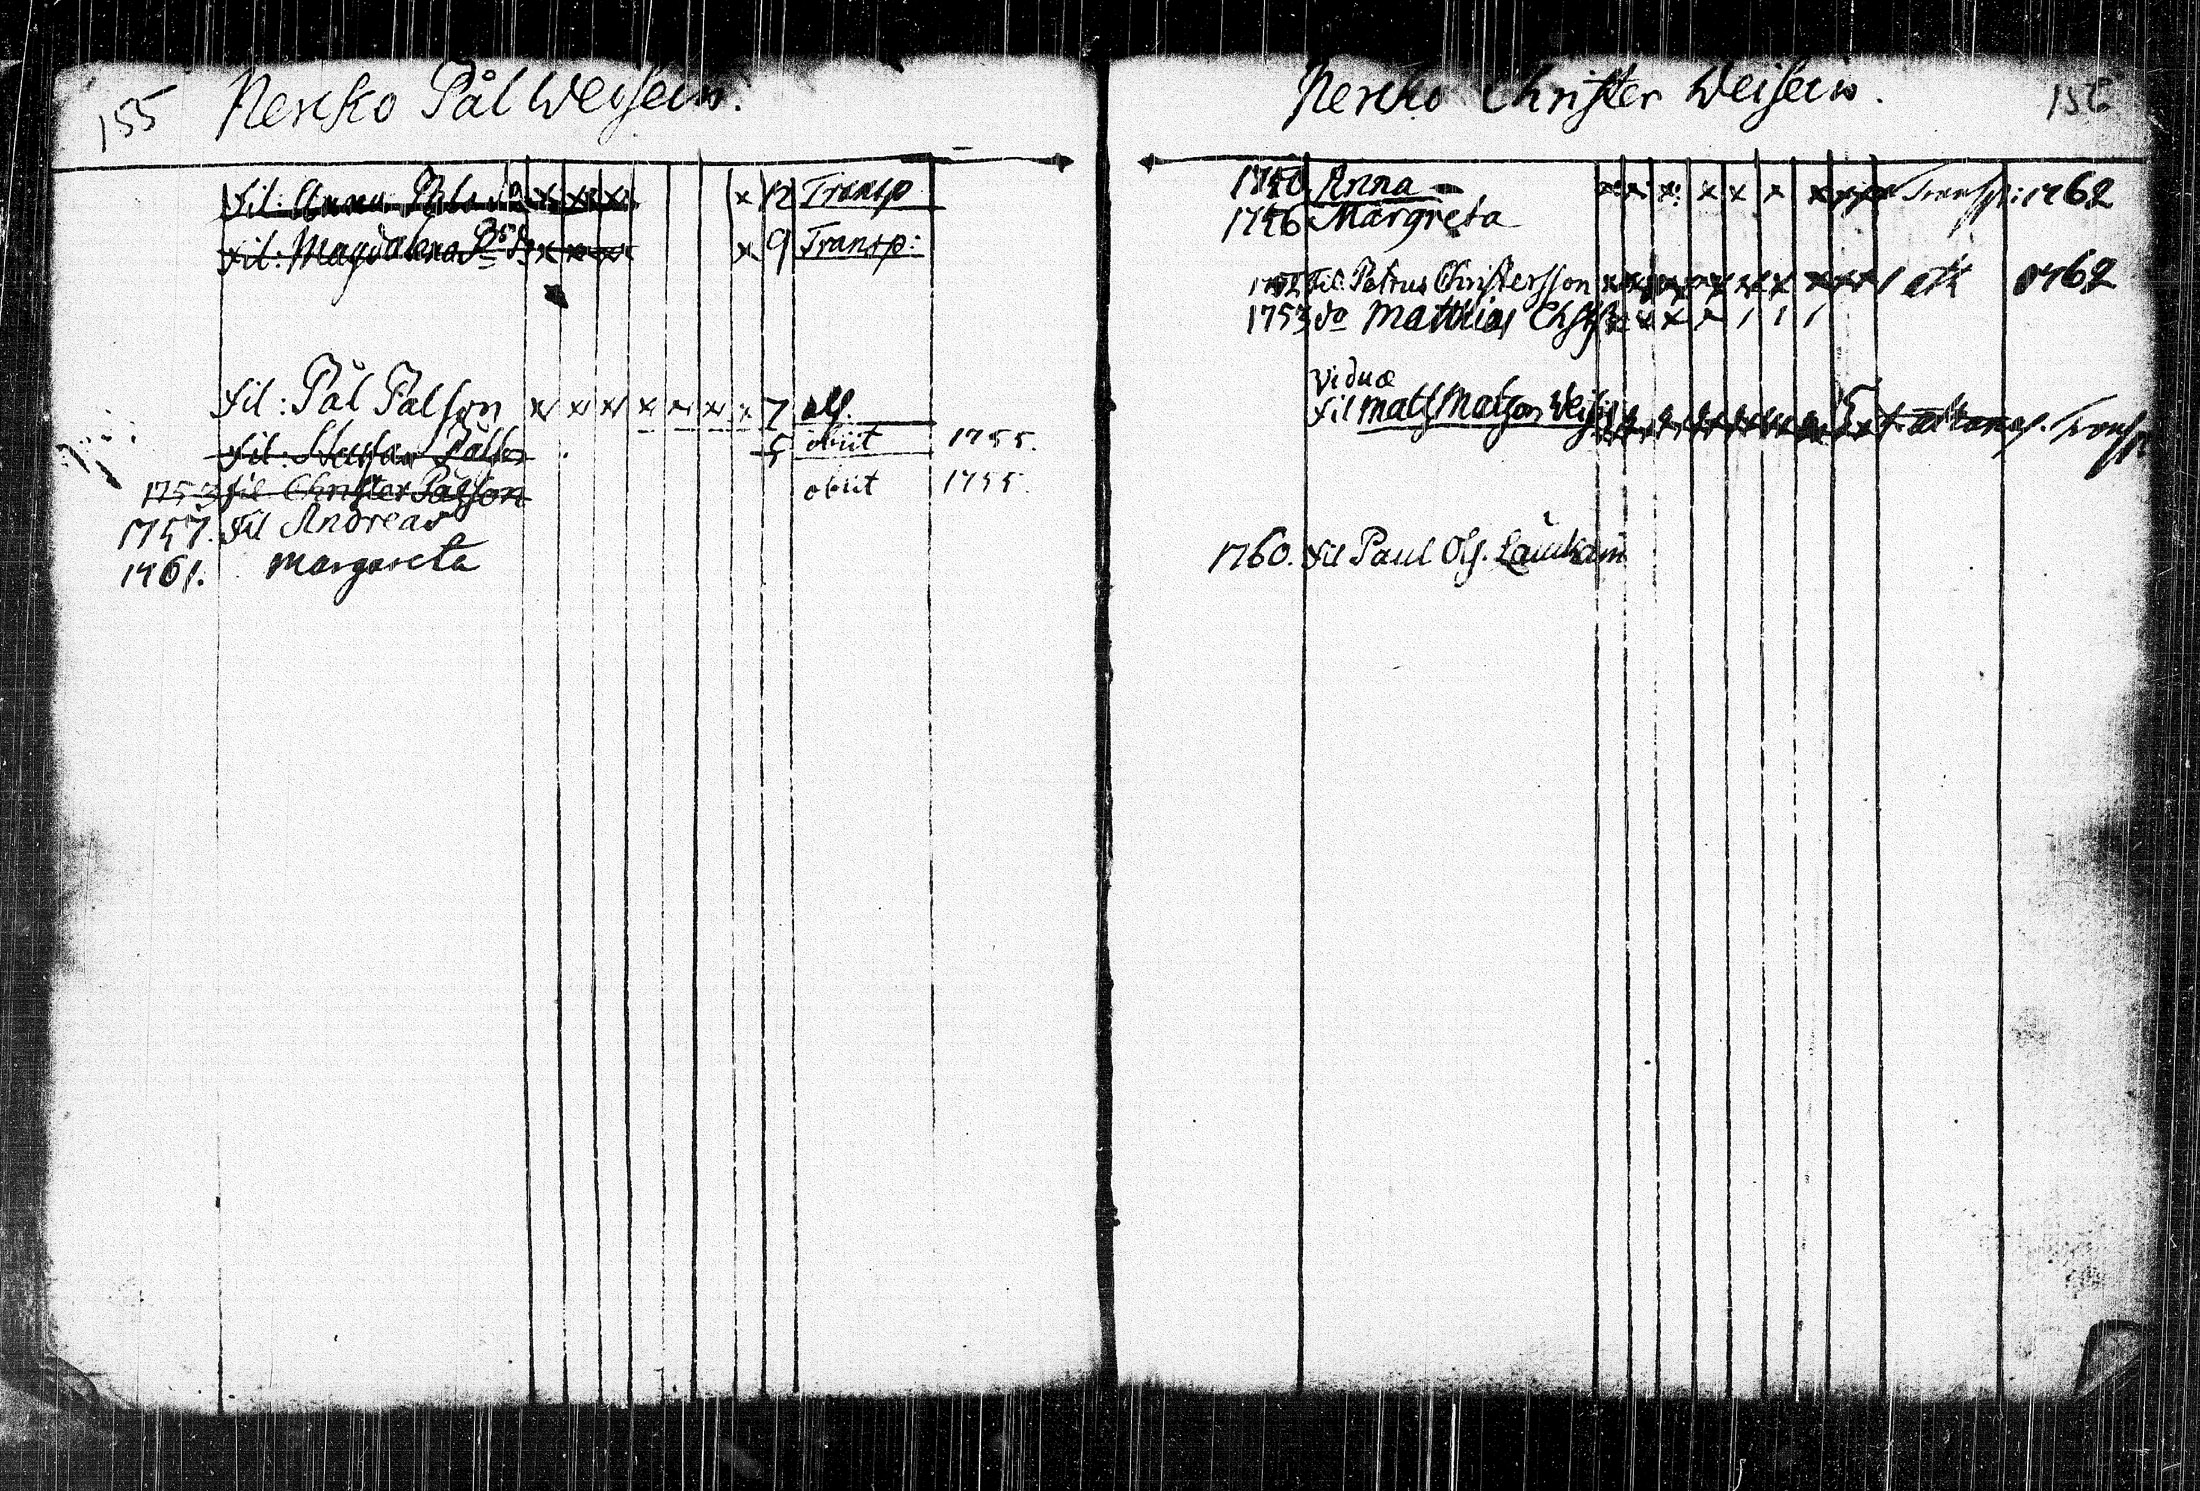 155 Nericko Pål Weisein.
fil: Anna Påls do x x x x x 12 Transp
fil: Magdalena Ps do x x x x x 9 Transp:
fil: Pål Pålson x x x x x x x 7 alf.
fil: Staffan Pålson 5 obiit 1755.
1753 fil Christer Pålson obiit 1755.
1757. fil Andreas
1761. Margareta
Nericko Christer Weisein. 156
1740. Anna x x x x x x x x x Transp: 1762
1746 Margreta
fil: Petrus Christersson x x x x x x x x x x 1762
1753 do Matthias Chs x x x 1 1 1
Viduæ
fil Mats Matson Weis Transp
1760. fil Paul Ols. Laukain